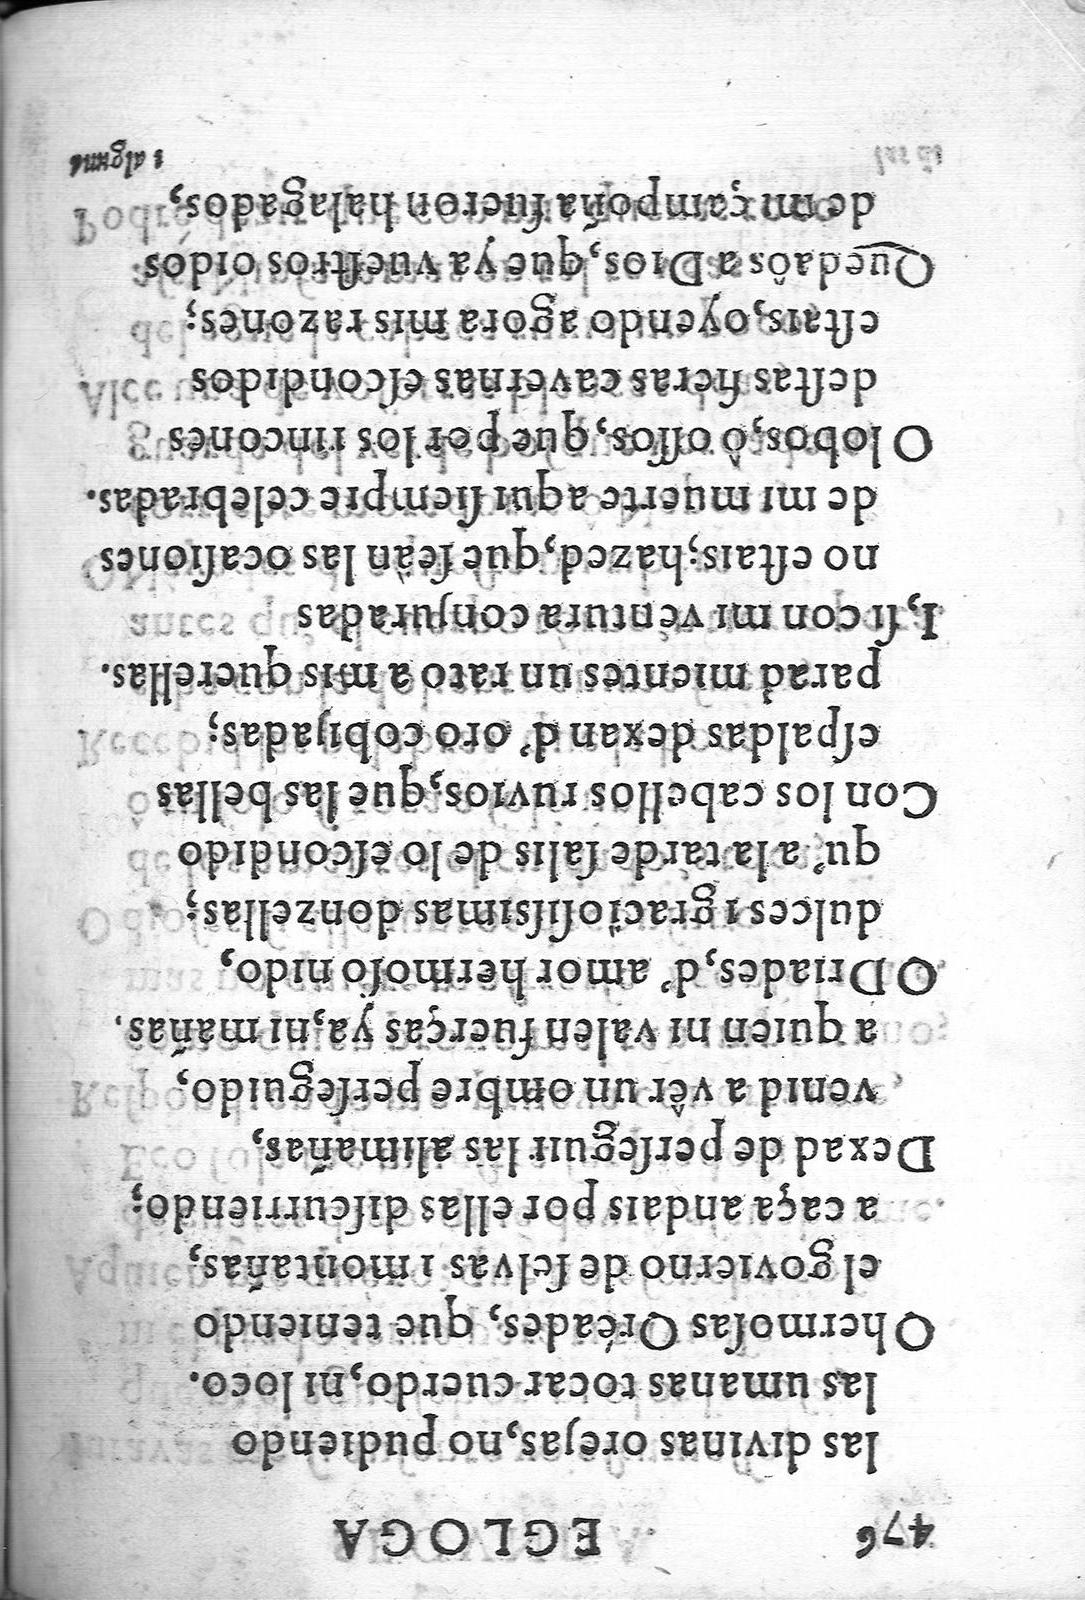 476 EGLOGA
las divinas orejas, no pudiendo
las umanas tocar cuerdo, ni loco.
O hermoſas Oréades, que teniendo
el govierno de ſelvas i montañas,
a caça andais por ellas diſcurriendo;
Dexad de perſeguir las alimañas,
venid a vêr un ombre perſeguido,
a quien ni valen fuerças ya, ni mañas.
O Driades, d' amor hermoſo nido,
dulces i gracioſiſsimas donzellas;
qu' a la tarde ſalis de lo eſcondido
Con los cabellos ruvios, que las bellas
eſpaldas dexan d' oro cobijadas;
parad mientes un rato a mis querellas.
I, ſi con mi ventura conjuradas
no eſtais; hazed, que ſean las ocaſiones
de mi muerte aqui ſiempre celebradas.
O lobos, ô oſſos, que por los rincones
deſtas fieras cavernas eſcondidos
eſtais, oyendo agora mis razones;
Quedaôs a Dios, que ya vueſtros oidos
de mi çampoña fueron halagados,
i alguna